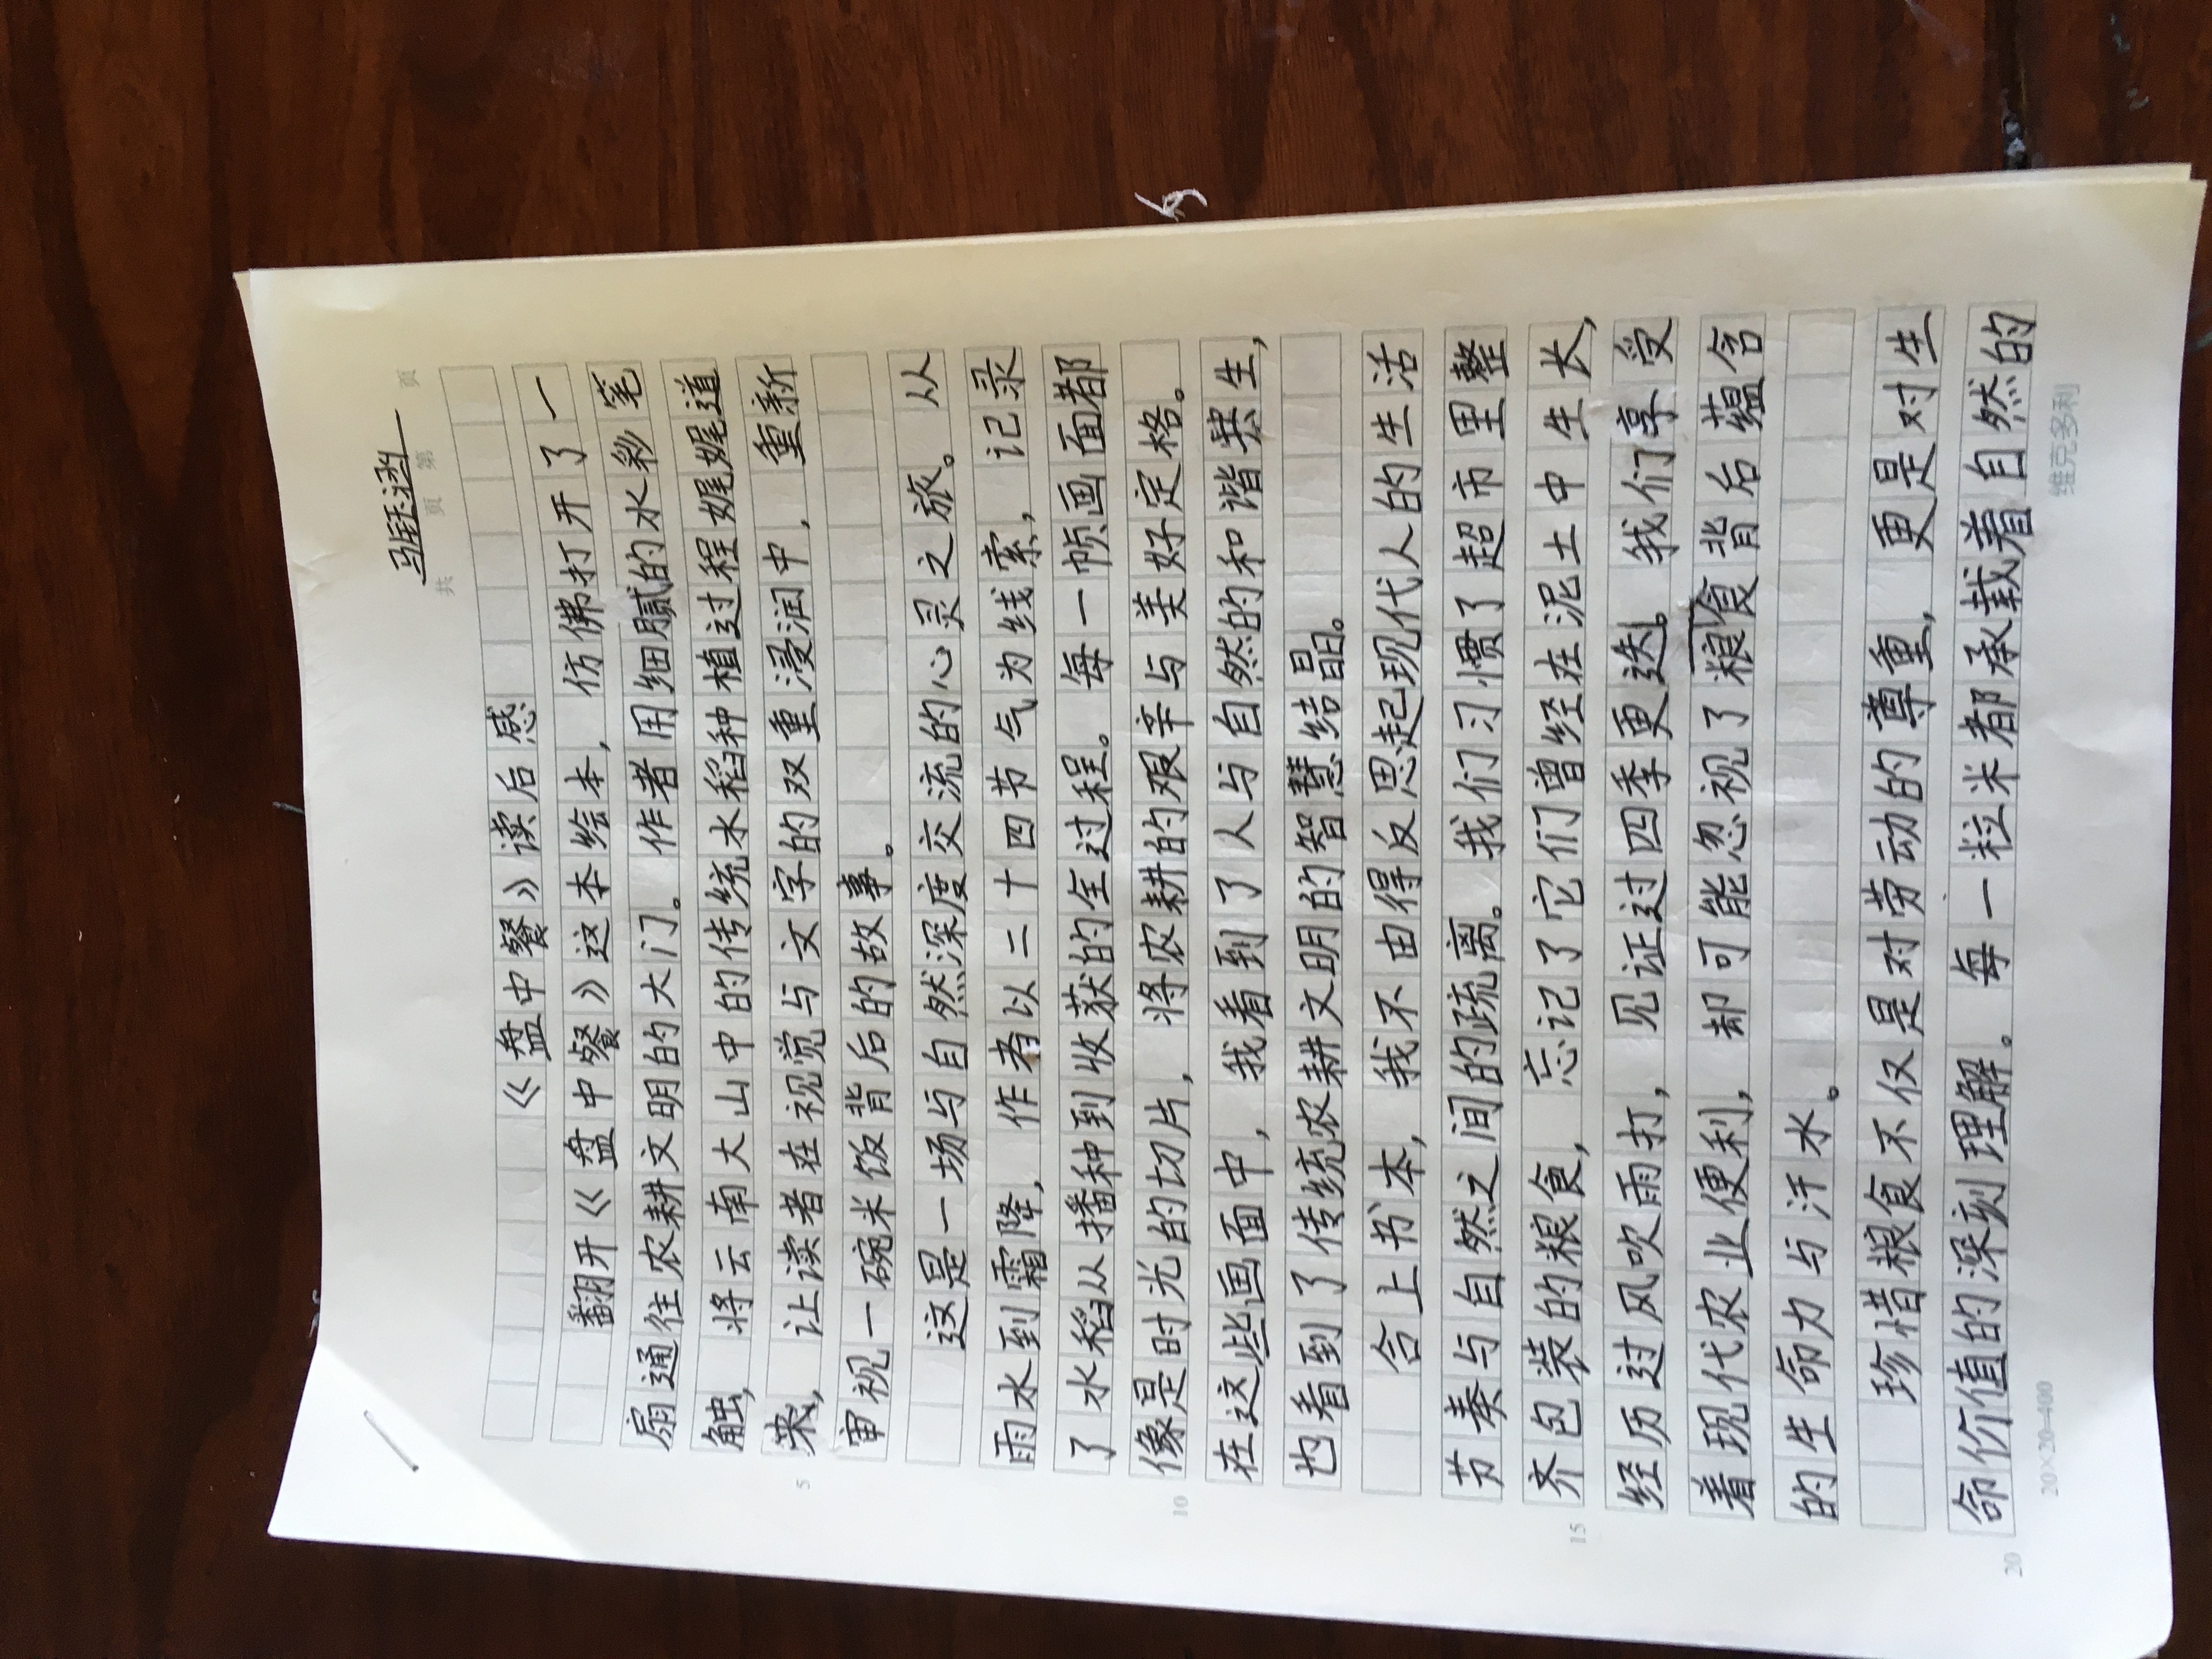 马钰涵
共 页 第 页
《盘中餐》读后感
翻开《盘中餐》这本绘本，仿佛打开了一
扇通往农耕文明的大门。作者用细腻的水彩笔
触，将云南大山中的传统水稻种植过程娓娓道
来，让读者在视觉与文字的双重浸润中，重新
审视一碗米饭背后的故事。
这是一场与自然深度交流的心灵之旅。从
雨水到霜降，作者以二十四节气为线索，记录
了水稻从播种到收获的全过程。每一帧画面都
像是时光的切片，将农耕的艰辛与美好定格。
在这些画面中，我看到了人与自然的和谐共生，
也看到了传统农耕文明的智慧结晶。
合上书本，我不由得反思起现代人的生活
节奏与自然之间的疏离。我们习惯了超市里整
齐包装的粮食，忘记了它们曾经在泥土中生长，
经历过风吹雨打，见证过四季更迭。我们享受
着现代农业便利，却可能忽视了粮食背后蕴含
的生命力与汗水。
珍惜粮食不仅是对劳动的尊重，更是对生
命价值的深刻理解。每一粒米都承载着自然的
5
10
15
20
20×20=400
维克多利